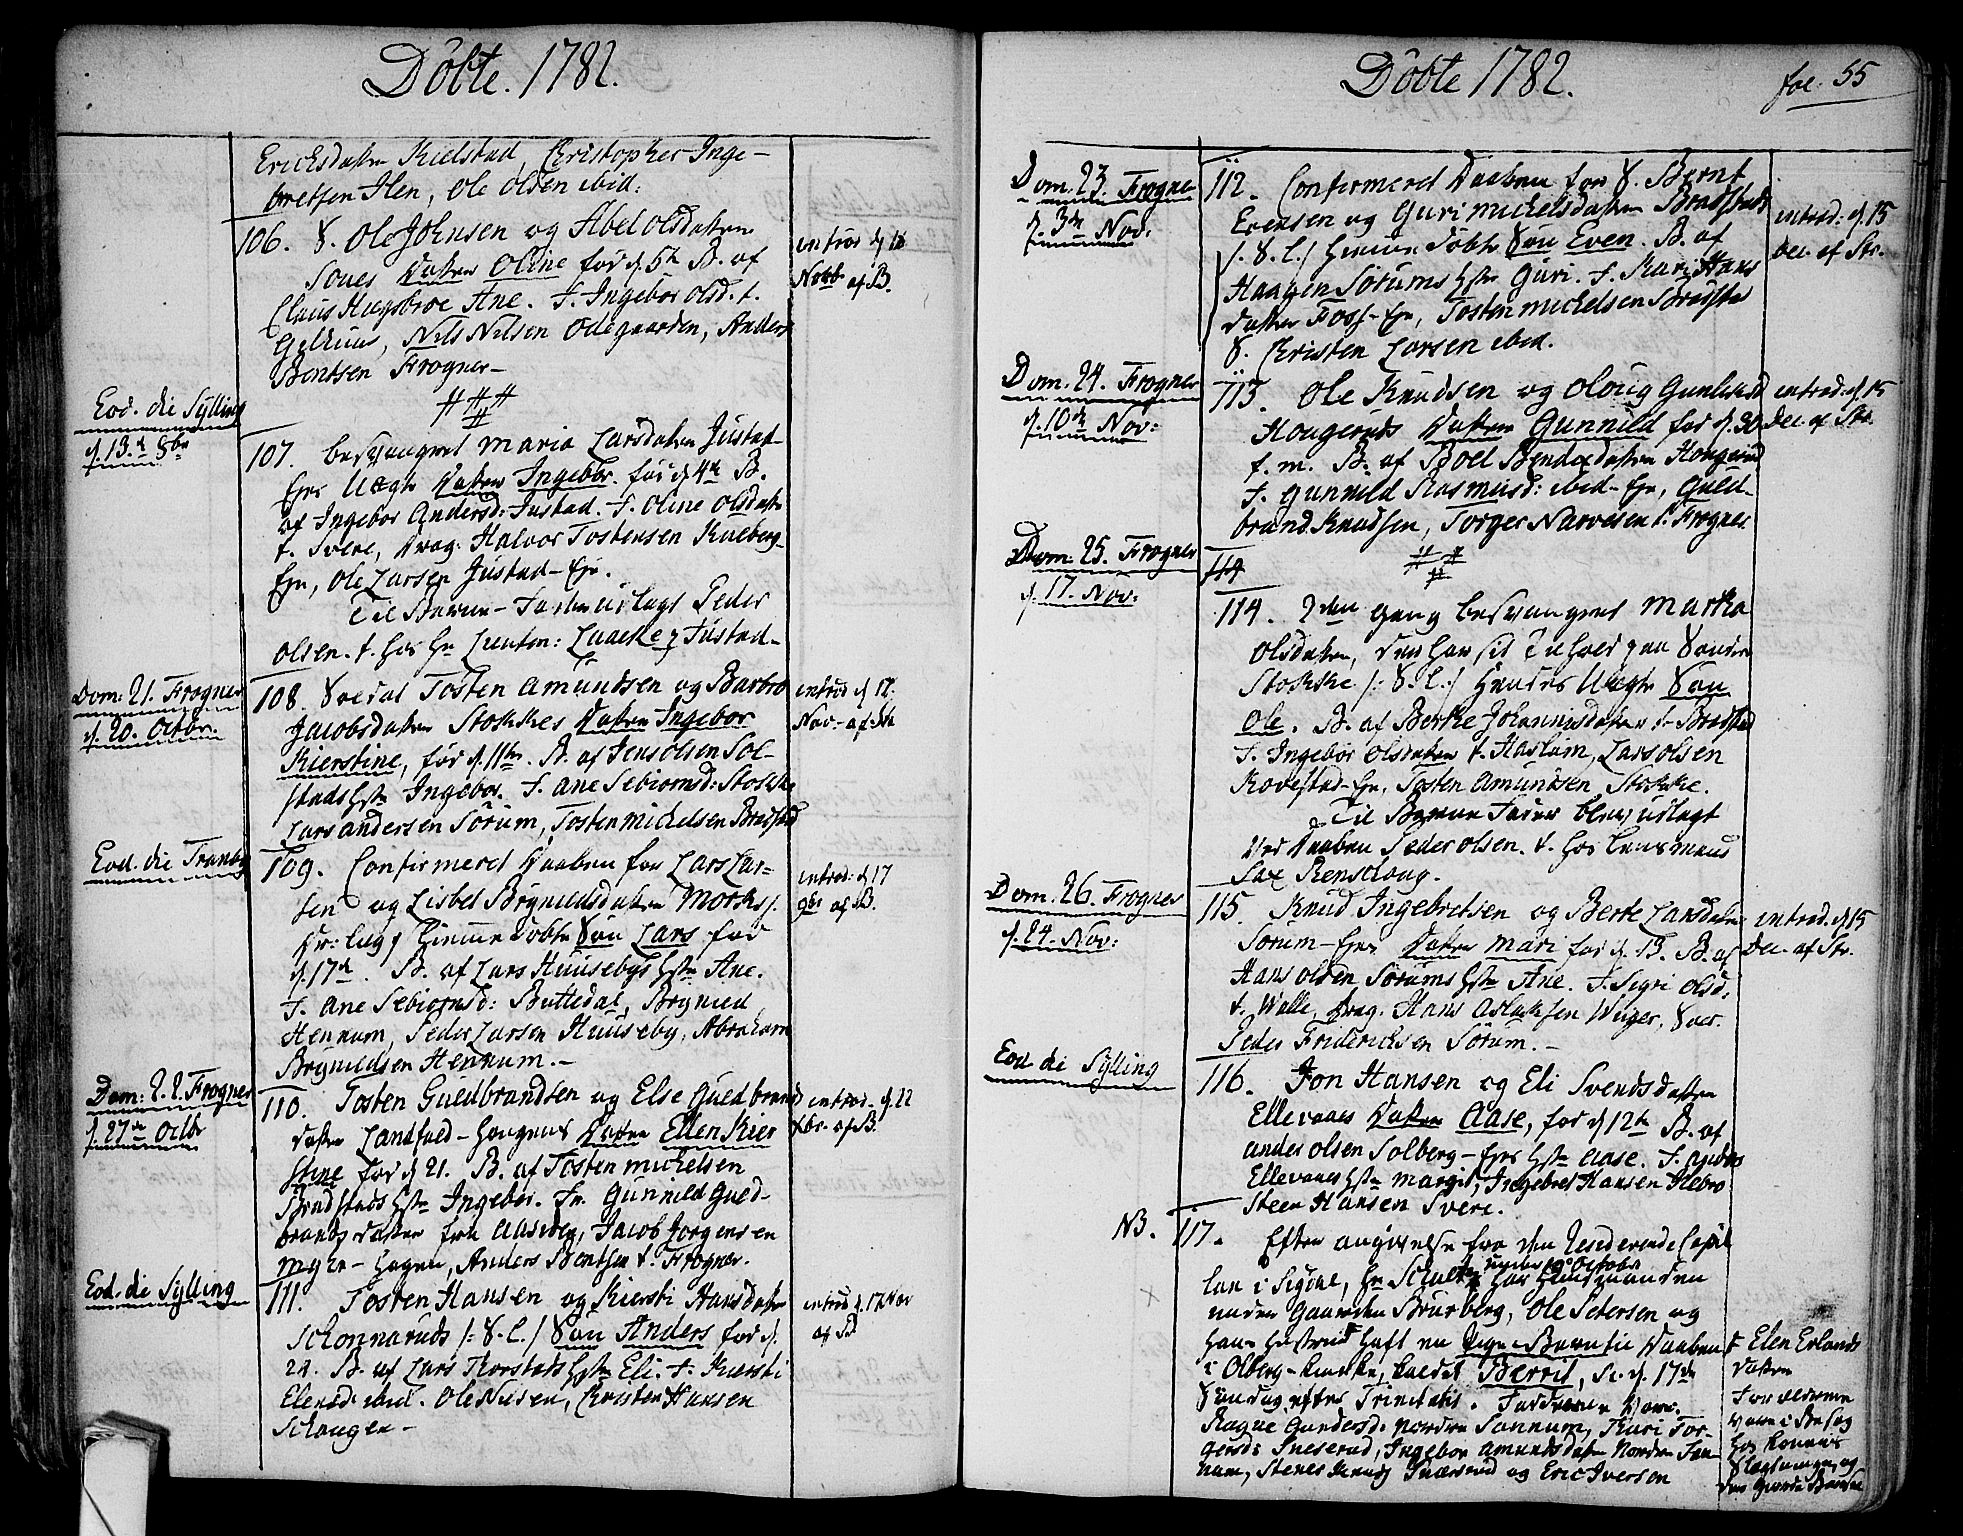 Döbte. 1782.
Ericksdatter Kielstad, Christopher Inge-
bretsen Ilen, Ole Olsen ibid:
106. S. Ole Johnsen og Abel Olsdatter
Datter Oline for d. 5te B. af
introd d 18
Novb af B.
Claus Ane. F. Ingebor Olsd. t.
Nils Nilsen Odegaarden, Anders
Bentsen Frogner-
Eod. die Sylling
d. 13.de 8br
107. Besvangret Maria Larsdatter Justad-
Ejes Uægte Datter Ingebor. for d 4de B.
af Ingebor Andersd: Justad. F. Oline Olsdatter
t. Svere, Drag: Halvor Tostensen
Eje, Ole Larsen Justad-Eje.
Til Barne-Fader udlagt Peder
Olsen. t. hos Hr Lieuten: Justad-
Dom: 21. Frogner
d. 20. Octbr.
108. Soldat Tosten Amundsen og Barbro
Jacobsdatter Stokkes Datter Ingebor
Kierstine, for d. 11te. B. af Jens Olsen Sol-
stads Hstr Ingebor. F. Ane Sebiornsd: Stokke
Lars Andersen Sörum, Tosten Michelsen Bradstad
introd d 17.
Nov- af Str
Eod. die Tranby
109. Confirmerd Daaben for Lars Lar=
sen og Lisbet Brynildsdatter Mörks/.
hiemme döbte Sön Lars for
d. 17de. B. af Lars Huusebys Hstr Ane.
F. Ane Sebiornsd: Buttedal, Brynild
Hennum, Peder Larsen Huuseby, Abraham
Brynildsen Hennum.-
introd: d 17
9br af B.
Dom: 22. Frogner
d. 27de Octbr
110. Tosten Guldbrandsen og Else Guldbrands
datter Landfald-Hougens Datter Ellen Kier
stine for d 21. B. af Tosten Michelsen
Bradstads Hstr Ingebor. Fr Gunnild Guld-
brands datter fra Aasideg, Jacob Jorgensen
Myre-Hagen, Anders Bentsen t. Frogner.
introd. d. 22
af B.
Eod. di Sylling
111. Tosten Hansen og Kiersti Hansdatter
Schonnaruds /: S. L./ Sön Anders for d.
21. B. af Lars Thorstads Hstr Eli. F. Kiersti
Elensd ibid. Ole Nilsen, Christen Hansen
Schougen-
introd d. 17. Nov
af B
Döbte 1782.
fol. 55
Dom. 23. Frogner
d. 3de Nov:
112. Confirmerd Daaben for S. Bernt
Evensen og Guri Michelsdatter Bradstads
/. S. L./ Hiemme döbte Sön Even. B. af
Haagen Sörums Hstr Guri. F. Kari Hans
datter Foss-Eje, Tosten Michelsen Bradstad
S. Christen Larsen ibid.
introd: d. 15
Dec. af Str.
Dom. 24. Frogner
d. 10de Nov:
113. Ole Knudsen og Oloug Gunlicksd
Hougeruds Datter Gunnild for d. 30
f. m. B. af Boel Bendixdatter Hougerud
F. Gunnild Rasmusd: ibid-Eje, Guld-
brand Knudsen, Torger Narvesen t. Frogner
introd. d. 15
Dec. af Str.
Dom. 25. Frogner
d. 17. Nov:
114
114. 2den gang besvangret Martha
Olsdatter, den har sit Tilhold paa Söndre
Stokke /: S. L./ Hendes Uægte Sön
Ole. B. af Berthe Johannisdatter t. Bradstad
F. Ingebor Olsdatter t. Haslum, Lars Olsen
Kovestad-Eje, Tosten Amundsen Stokke.
Til Barne Fader blev udlagt
ved Daaben Peder Olsen. t. hos Lensmand
Sax Renskoug.
Dom. 26. Frogner
d. 24. Nov:
115. Knud Ingebretsen og Berte Larsdatter
Sörum-Ejes Datter Mari for d. 13. B. af
Hans Olsen Sörums Hstr Ane. F. Sigri Olsd.
t. Walle, Drag. Hans Aslaksen Weiger, Soer.
Peder Fridericksen Sörum.-
introd. d. 15
Dec. af Str.
Eod di Sylling
116. Jon Hansen og Eli Svendsdatter
Ellevaaes Datter Aase, for d 12te B. af
Anders Olsen Solberg-Ejes Hstr Aase. F. Anders
Ellevaaes Hstr Margit, Ingebret Hansen
Steen Hansen Svere.
NB. 117. Efter angivelse fra den Residerende Capel
lan i Sigdal, Hr Schultz under 19de Octobr har Huusmanden
under Gaarden Bruberg, Ole Petersen og
Hans Hustrue haft en Pige-Barn til Daaben
i Olberg-Kirke, kaldet Berrit, sc. d. 17de
Söndag efter Trinitatis. Fadderne vare.
Ragne Gundersd: Nordre Sonnum, Kari Tor-
gersd: Ingebor Amundsdatter Nordre
num, Stener og Eric Iversen
Elen Erlands
datter
Forældrene
vare i Besög
hos Konens
Slægtninge, og
den giorde Barsel